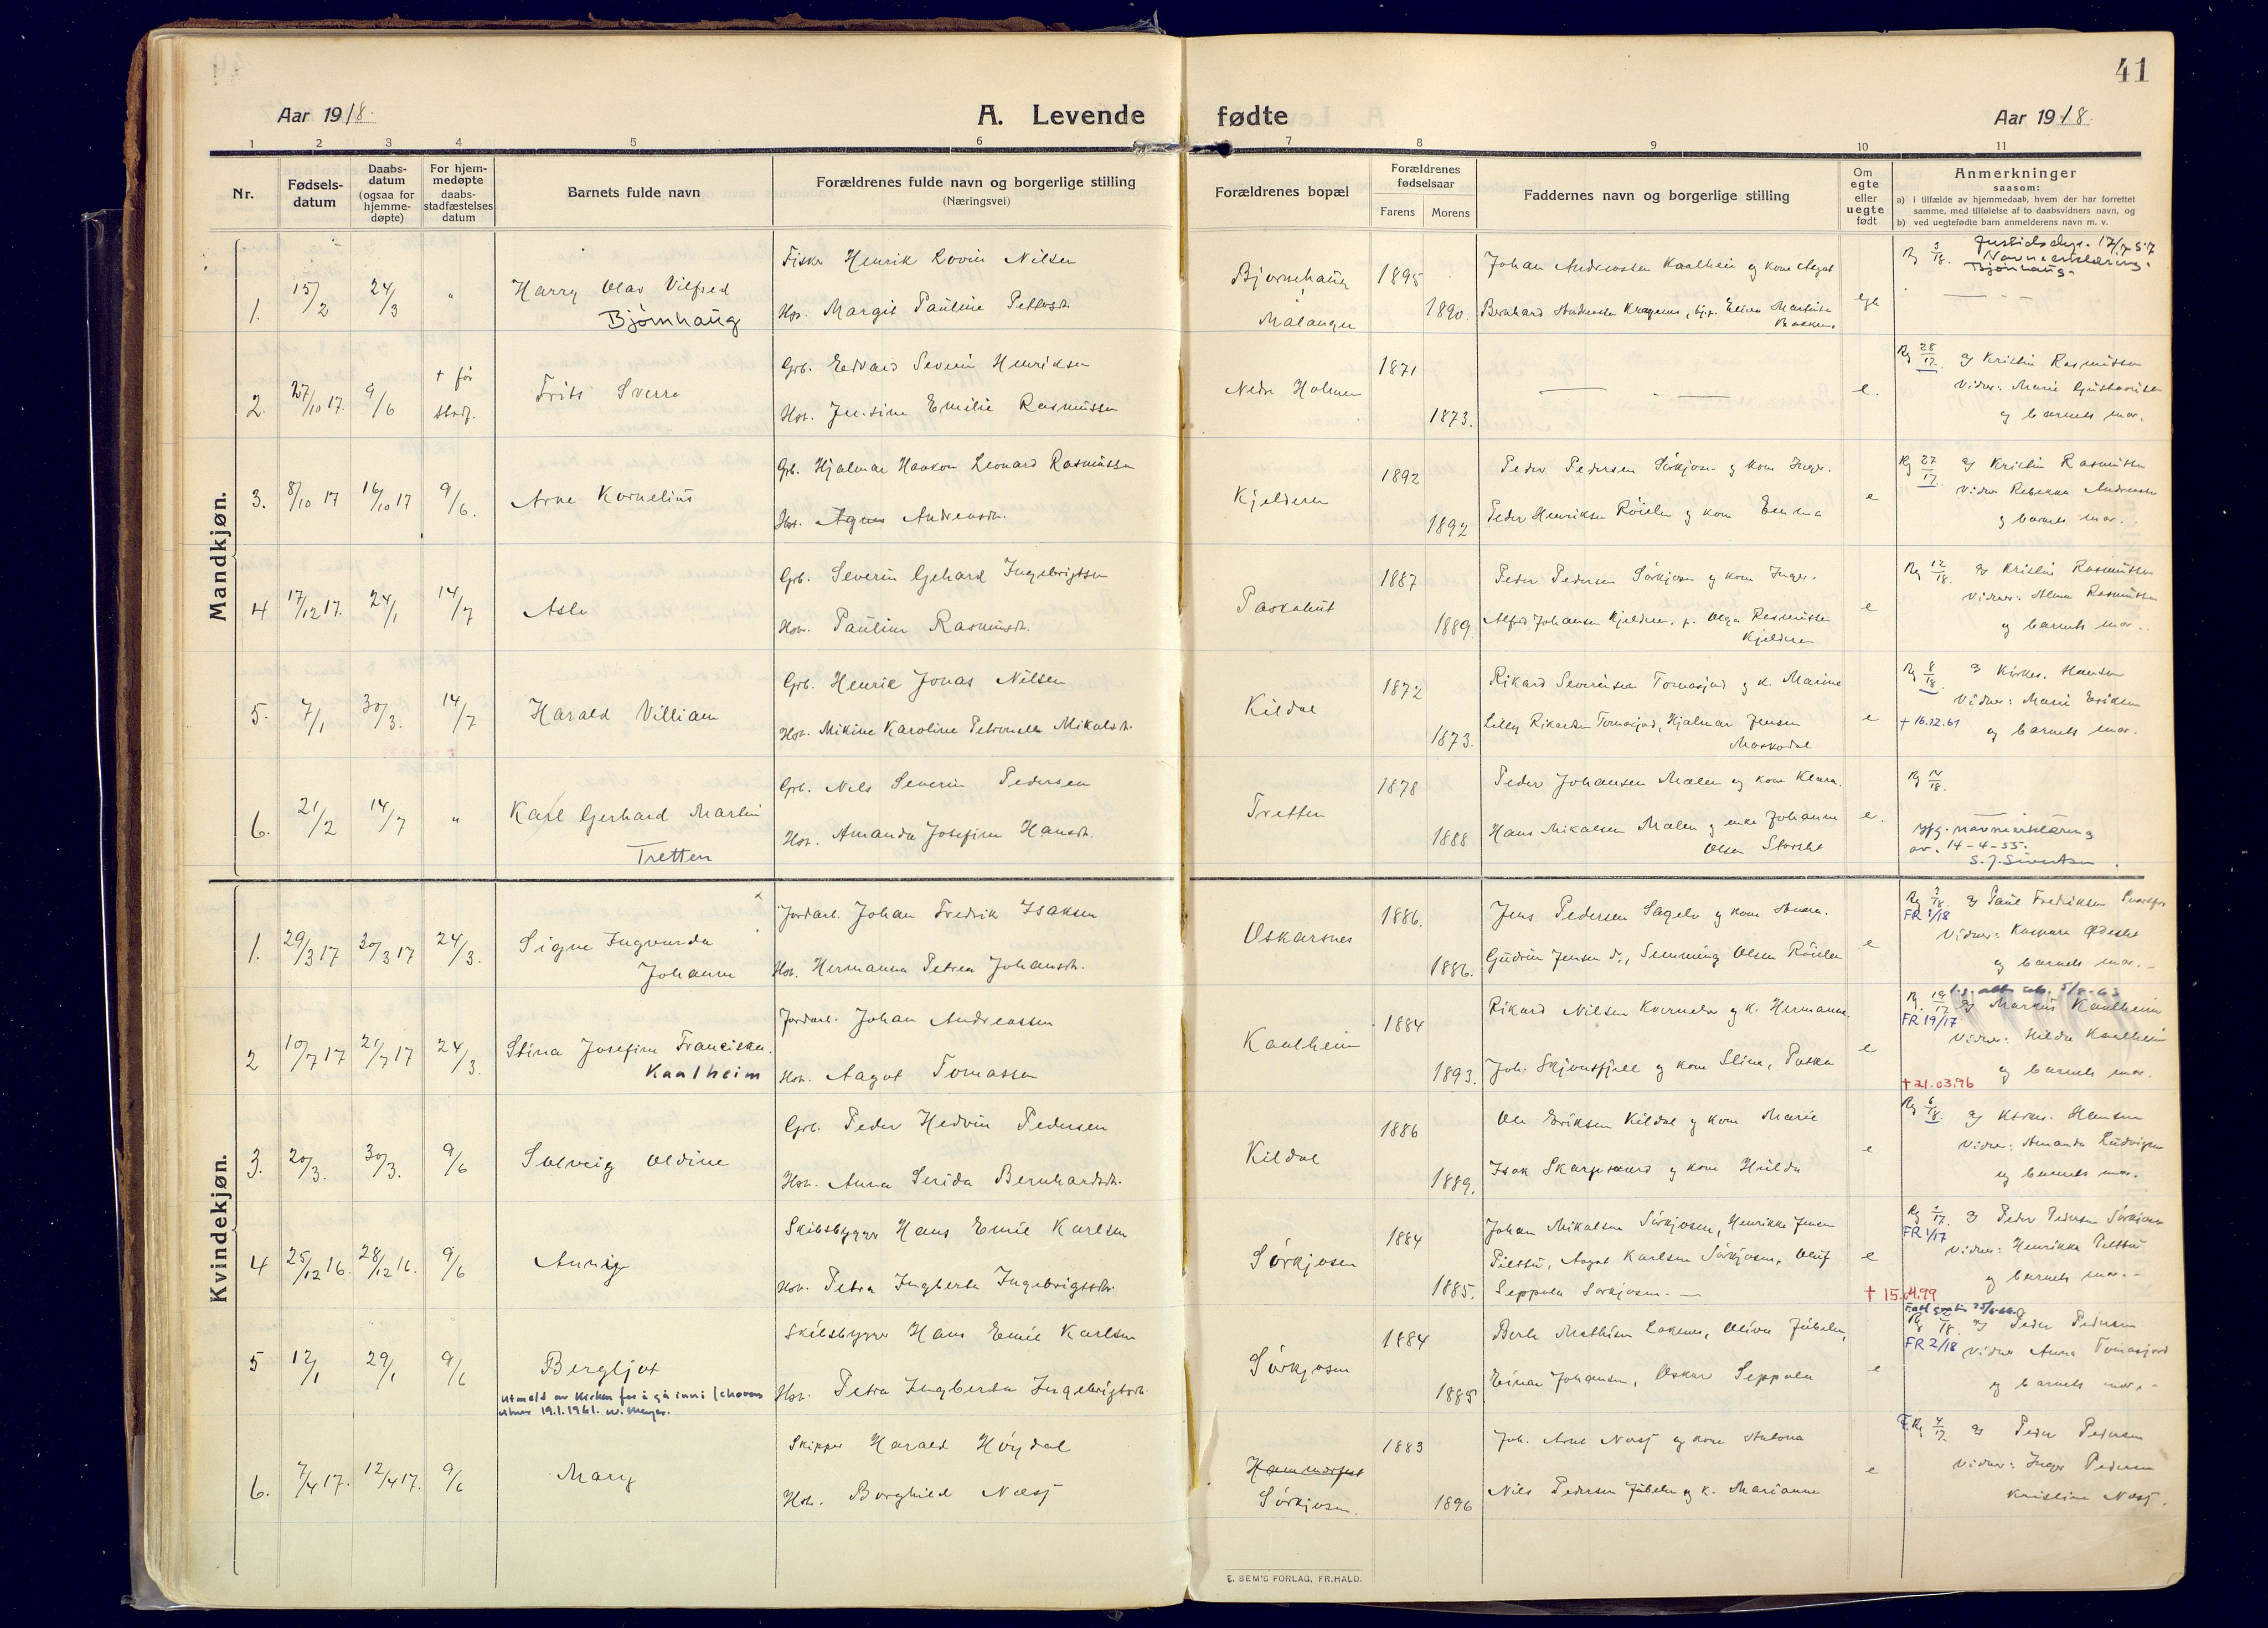 41
Aar 1918.
A. Levende fødte
Aar 1918.
1 2 3 4 5 6 7 8 9 10 11
Nr.
Fødsels-
datum
Daabs-
datum
(ogsaa for
hjemme-
døpte)
For hjem-
medøpte
daabs-
stadfæstelses
datum
Barnets fulde navn
Forældrenes fulde navn og borgerlige stilling
(Næringsvei)
Forældrenes bopæl
Forældrenes
fødselsaar
Farens Morens
Faddernes navn og borgerlige stilling
Om
egte
eller
uegte
født
Anmerkninger
saasom:
a) i tilfælde av hjemmedaab, hvem der har forrettet
samme, med tilføielse af to daabsvidners navn, og
b) ved uegtefødte barn anmelderens navn m. v.
Mandkjøn.
1. 15/2 24/3 "
Harry Olav Vilfred
Bjørnhaug
Fisker Henrik Nilsen
Hst. Margit Pauline
Malangen
1895
1890.
Johan Andreassen Kaalhein og kone Agot
Navneerklæring.
Bjønhaug.
2. 27/10 17. 9/6 + før
stadf.
Frits Sverre
Grb. Edvard Severin Henriksen
Hst. Jensine Emilie Rasmussen
Nedr Holmen
1871
1873.
e.
Rg 28/17. av Kristin Rasmussen
Vidner: Marie
og barnets mor.
3. 8/10 17 16/10 17 9/6.
Arne Kornelius
Grb. Hjalmar Haakon Leonard Rasmussen
Hst. Agnes Andreasdt.
Kjelderen
1892
1892
Peder Pedersen Sørkjosen og kone Inger.
Peder Henriksen Røielen og kone Emma
e
Rg 27/17. av Kristin Rasmussen
Vidner Rebekka Andreassen
og barnets mor.
4 17/12 17. 24/1 14/7
Asle
Grb. Severin Gehard Ingebrigtsen
Hst. Pauline Rasmusdt.
Paskahut
1887
1889.
Peder Pedersen Sørkjosen og kone Inger.
Alfred Johansen Kjelderen, p. Olga Rasmussen
Kjelderen
e
Rg 12/18. av Kristin Rasmussen
Vidner: Alma Rasmussen
og barnets mor.
5. 7/1 30/3. 14/7
Harald Villiam
Grb. Henrik Jonas Nilsen
Hst. Mikine Karoline Petronella Mikalsdt.
Kildal
1872
1873.
Rikard Severinsen Tomasjord og k. Marine
Lilly Rikardsen Tomasjord, Hjalmar Jensen
e
Rg 8/18. av Kirkes. Hansen
Vidner: Marie Eriksen
+ 16.12.61 og barnets mor.
6. 21/2 14/7 "
Karl Gerhard Martin
Tretten
Grb. Nils Severin Pedersen
Hst. Amanda Josefine Hansdt.
Tretten
1878
1888
Peder Johansen Malen og kone Klara.
Hans Mikalsen Malen og enke Johanne
Olsen Storslet
e.
Rg 14/18.
navneerklæring
av. 14-4-55.
S. J. Sivertsen.
Kvindekjøn.
1. 29/3 17 30/3 17 24/3.
Signe Ingvarda
Johanne
Jordarb. Johan Fredrik Isaksen
Hst. Hermanna Petrea Johansdt.
Oskarsnes
1886.
1886.
Jens Pedersen Sagelv og kone
Gudrun Jensen d., Semming Olsen Røielen
e
FR 1/18
av Paul Fredriksen
Vidner: Kaspara
og barnets mor.
2 10/7 17 21/7 17 24/3.
Stina Josefine Franciska.
Kaalheim
Jordarb. Johan Andreassen
Hst. Aagot Tomassen
Kaalheim
1884
1893.
Rikard Nilsen og k. Hermanna.
Joh. Skjönsfjell og kone Stina, Paska
e
Rg. 19/17 av Markus Kaalheim
FR 19/17
Vidner: Hilda Kaalheim
og barnets mor.
+21.03.96
3. 20/3. 30/3. 9/6
Solveig Oldine
Grb. Peder Hedvin Pedersen
Hst. Anna Serida Bernhardsdt.
Kildal
1886
1889.
Ole Eriksen Kildal og kone Marie
Isak Skarpsaard og kone Hulda
e
Rg 6/18. av Kirkes. Hansen
Vidner: Amanda Ludvigsen
og barnets mor.
4 25/12 16. 28/12 16. 9/6
Skibsbygger Hans Emil Karlsen
Hst. Petra Ingberta Ingebrigtsdt.
Sørkjosen
1884
1885.
Johan Mikalsen Sørkjosen, Henrikke Jensen
Aagot Karlsen Sørkjosen, Oluf
Seppola Sørkjosen.
e
av Peder Pedersen Sørkjosen
FR 1/17
Vidner: Henrikke
og barnets mor.
+ 15.04.99
5 12/1 29/1 9/6
Bergljot
Utmeldt av kirken for å gå inn i
19.1.1961.
Skibsbygger Hans Emil Karlsen
Hst. Petra Ingberta Ingebrigtsdt.
Sørkjosen
1884
1885
Einar Johansen, Oskar Seppola
e
av Peder Pedersen
FR 2/18
Vidner Anna Tomasjord
og barnets mor.
6. 7/4 17. 12/4 17. 9/6
Mary
Skipper Harald Høydal
Hst. Borghild Næsj
Hammerfest
Sørkjosen.
1883
1896
Joh. Arne Næsj og kone Antona
Nils Pedersen Jubelen og k. Marianne
e
Rg 4/17 av Peder Pedersen
Vidner: Inger Pedersen
Kristine Næsj.
E. SEM'S FORLAG, FR.HALD.